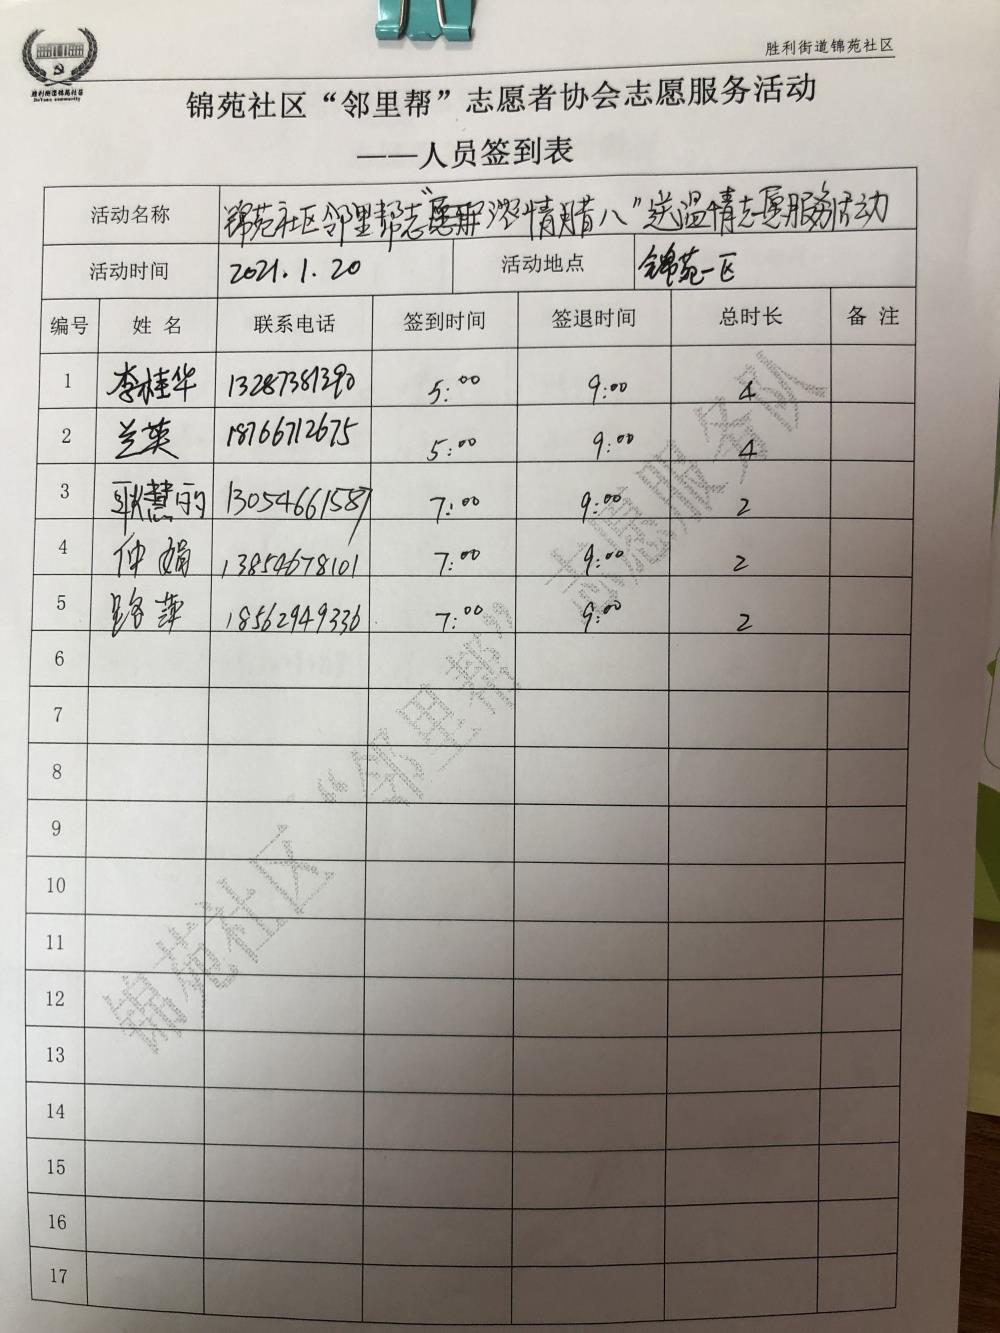 胜利街道锦苑社区
胜利街道锦苑社区
锦苑社区“邻里帮”志愿者协会志愿服务活动
——人员签到表
活动名称 锦苑社区邻里帮志愿 浓情腊八”送温情志愿服务活动
活动时间 2021.1.20 活动地点 锦苑一区
编号 姓名 联系电话 签到时间 签退时间 总时长 备注
1 李桂华 13287381390 5:00 9:00 4
2 兰英 18766712675 5:00 9:00 4
3 耿慧丽 13054661587 7:00 9:00 2
4 仲娟 13854678101 7:00 9:00 2
5 路萍 18562949336 7:00 9:00 2
6
7
8
9
10
11
12
13
14
15
16
17
锦苑社区“邻里帮”志愿服务队